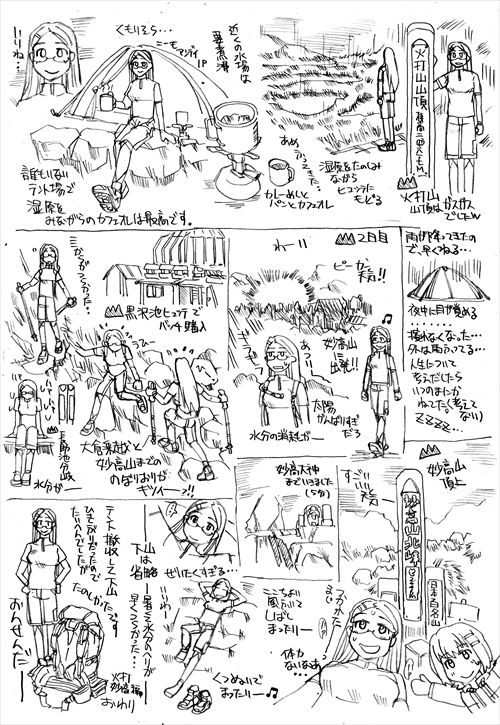 火打山山頂
火打山
山頂はガスガス
でしたw
湿原をたのしみ
ながら
ヒュッテに
もどる
あめ
ふってきた…
カレーめしと
パンとカフェオレ
近くの水場は
要煮沸
くもりだら…
いいね…
誰もいない
テント場で
湿原を
みながらのカフェオレは最高です。
雨が降ってきたの
で、早くねる…
夜中に目が覚める
‥‥‥‥
揺れなくなった…
外は雨ふってる…
人生について
考えだしたら
いつのまにか
ねてた(考えて
ない)
ZZZZ…
2日目
ピーカン
天気!!
わーい
妙高山
に
出発!!
あつい!!
太陽
がんばりすぎ
だろ
水分の消耗がー
黒沢池ヒュッテで
バッチ購入
大倉乗越と
妙高山までの
のぼりおりが
キツイー!!
長助池分岐
水分がー
妙高山
頂上
妙高山北峰
日本百名山
すごい
天気ー
つかれた
妙高大神
まで行きました
(5分)
ここちよい
風ふいて
しばし
まったりー
体力
ないなあ…
ぜいたくすぎる…
くつぬいで
まったりー♪
下山
は
省略
ー暑くて水分のヘりが
早くてつらかった…
テント撤収して下山
ひさびさだったので
たいへんでしたが
たのしかったです
おんせんだー
火打
妙高編
おわり